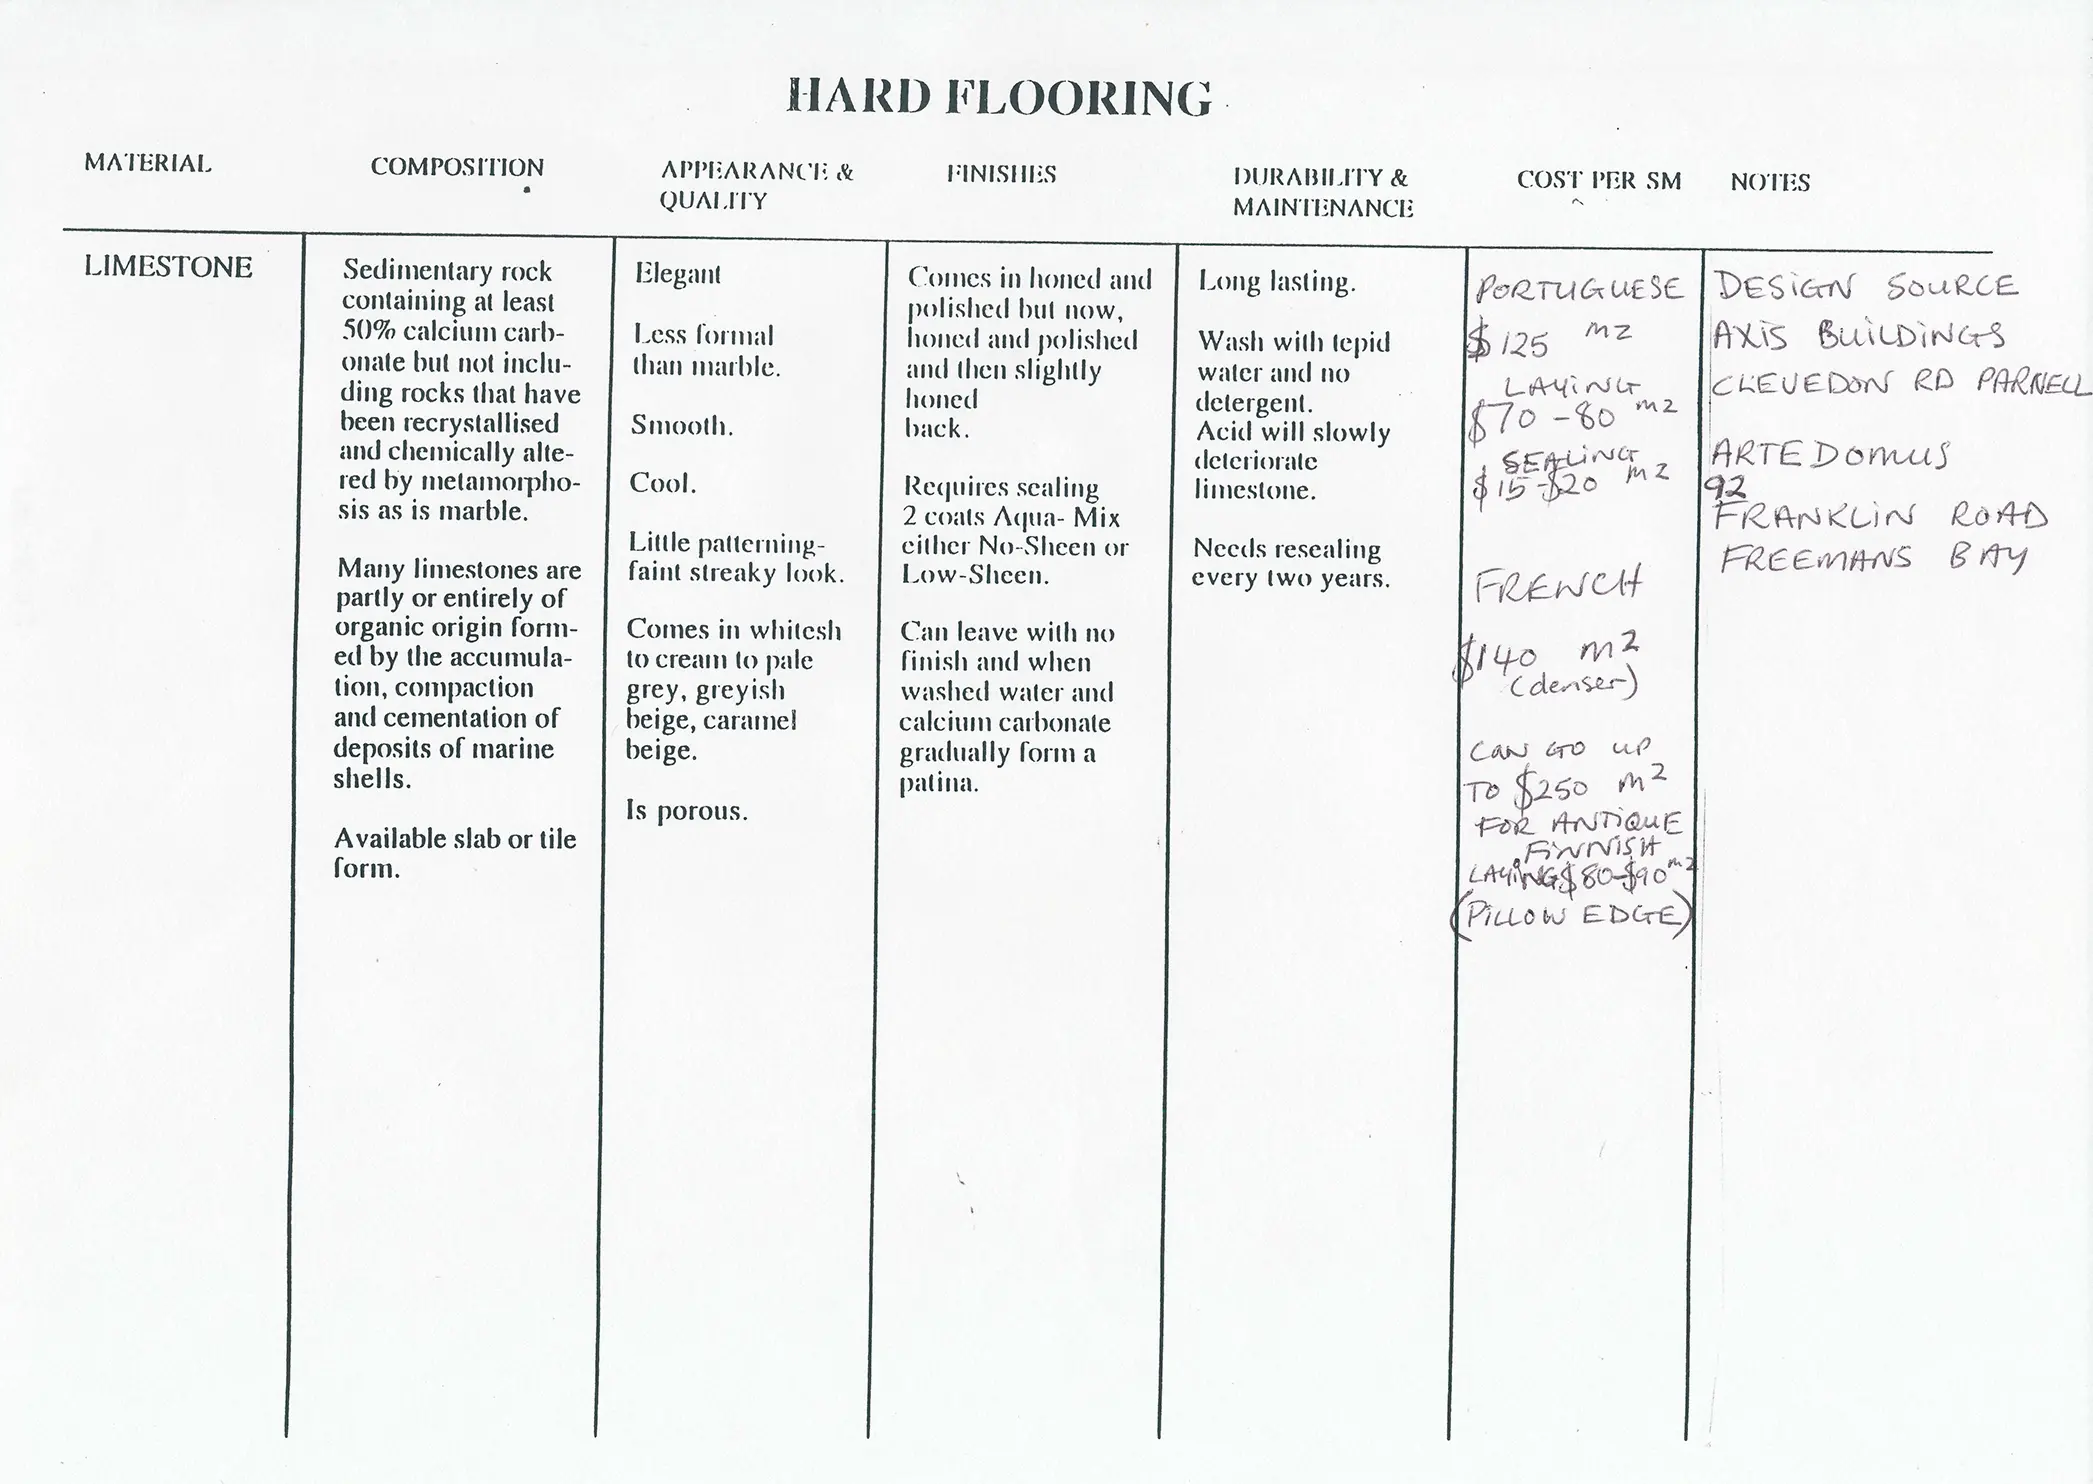 HARD FLOORING
MATERIAL
COMPOSITION
APPEARANCE &
QUALITY
FINISHES
DURABILITY &
MAINTENANCE
COST PER SM
NOTES
LIMESTONE
Sedimentary rock
containing at least
50% calcium carb-
onate but not inclu-
ding rocks that have
been recrystallised
and chemically alte-
red by metamorpho-
sis as is marble.
Many limestones are
partly or entirely of
organic origin form-
ed by the accumula-
tion, compaction
and cementation of
deposits of marine
shells.
Available slab or tile
form.
Elegant
Less formal
than marble.
Smooth.
Cool.
Little patterning-
faint streaky look.
Comes in whitesh
to cream to pale
grey, greyish
beige, caramel
beige.
Is porous.
Comes in honed and
polished but now,
honed and polished
and then slightly
honed
back.
Requires sealing
2 coats Aqua- Mix
either No-Sheen or
Low-Sheen.
Can leave with no
finish and when
washed water and
calcium carbonate
gradually form a
patina.
Long lasting.
Wash with tepid
water and no
detergent.
Acid will slowly
deteriorate
limestone.
Needs resealing
every two years.
PORTUGUESE
$125 m2
LAYING
$70-80 m2
SEALING
$15-$20 m2
FRENCH
$140 m2
(denser)
CAN GO UP
TO $250 m2
FOR ANTIQUE
FINNISH
LAYING $80-$90 m2
(PILLOW EDGE)
DESIGN SOURCE
AXIS BUILDINGS
CLEVEDON RD PARNELL
ARTEDOMUS
92
FRANKLIN ROAD
FREEMANS BAY